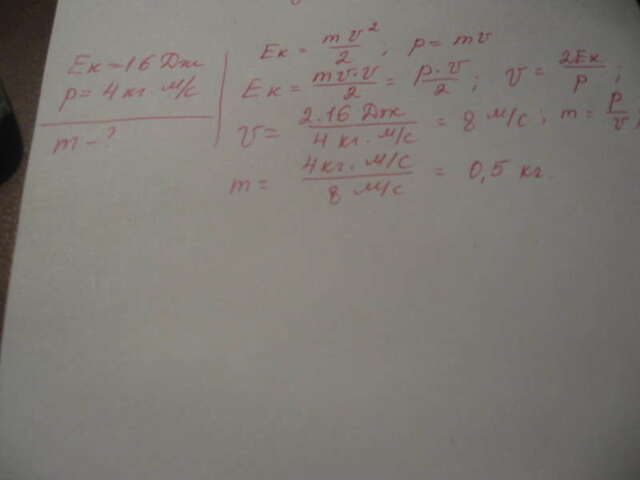 Eк = 16 Дж
p = 4 кг · м/с
m - ?
Eк = mv²/2, p = mv
Eк = mv·v/2 = p·v/2; v = 2Eк/p;
v = 2·16 Дж/4 кг · м/с = 8 м/с; m = p/v;
m = 4 кг · м/с/8 м/с = 0,5 кг.